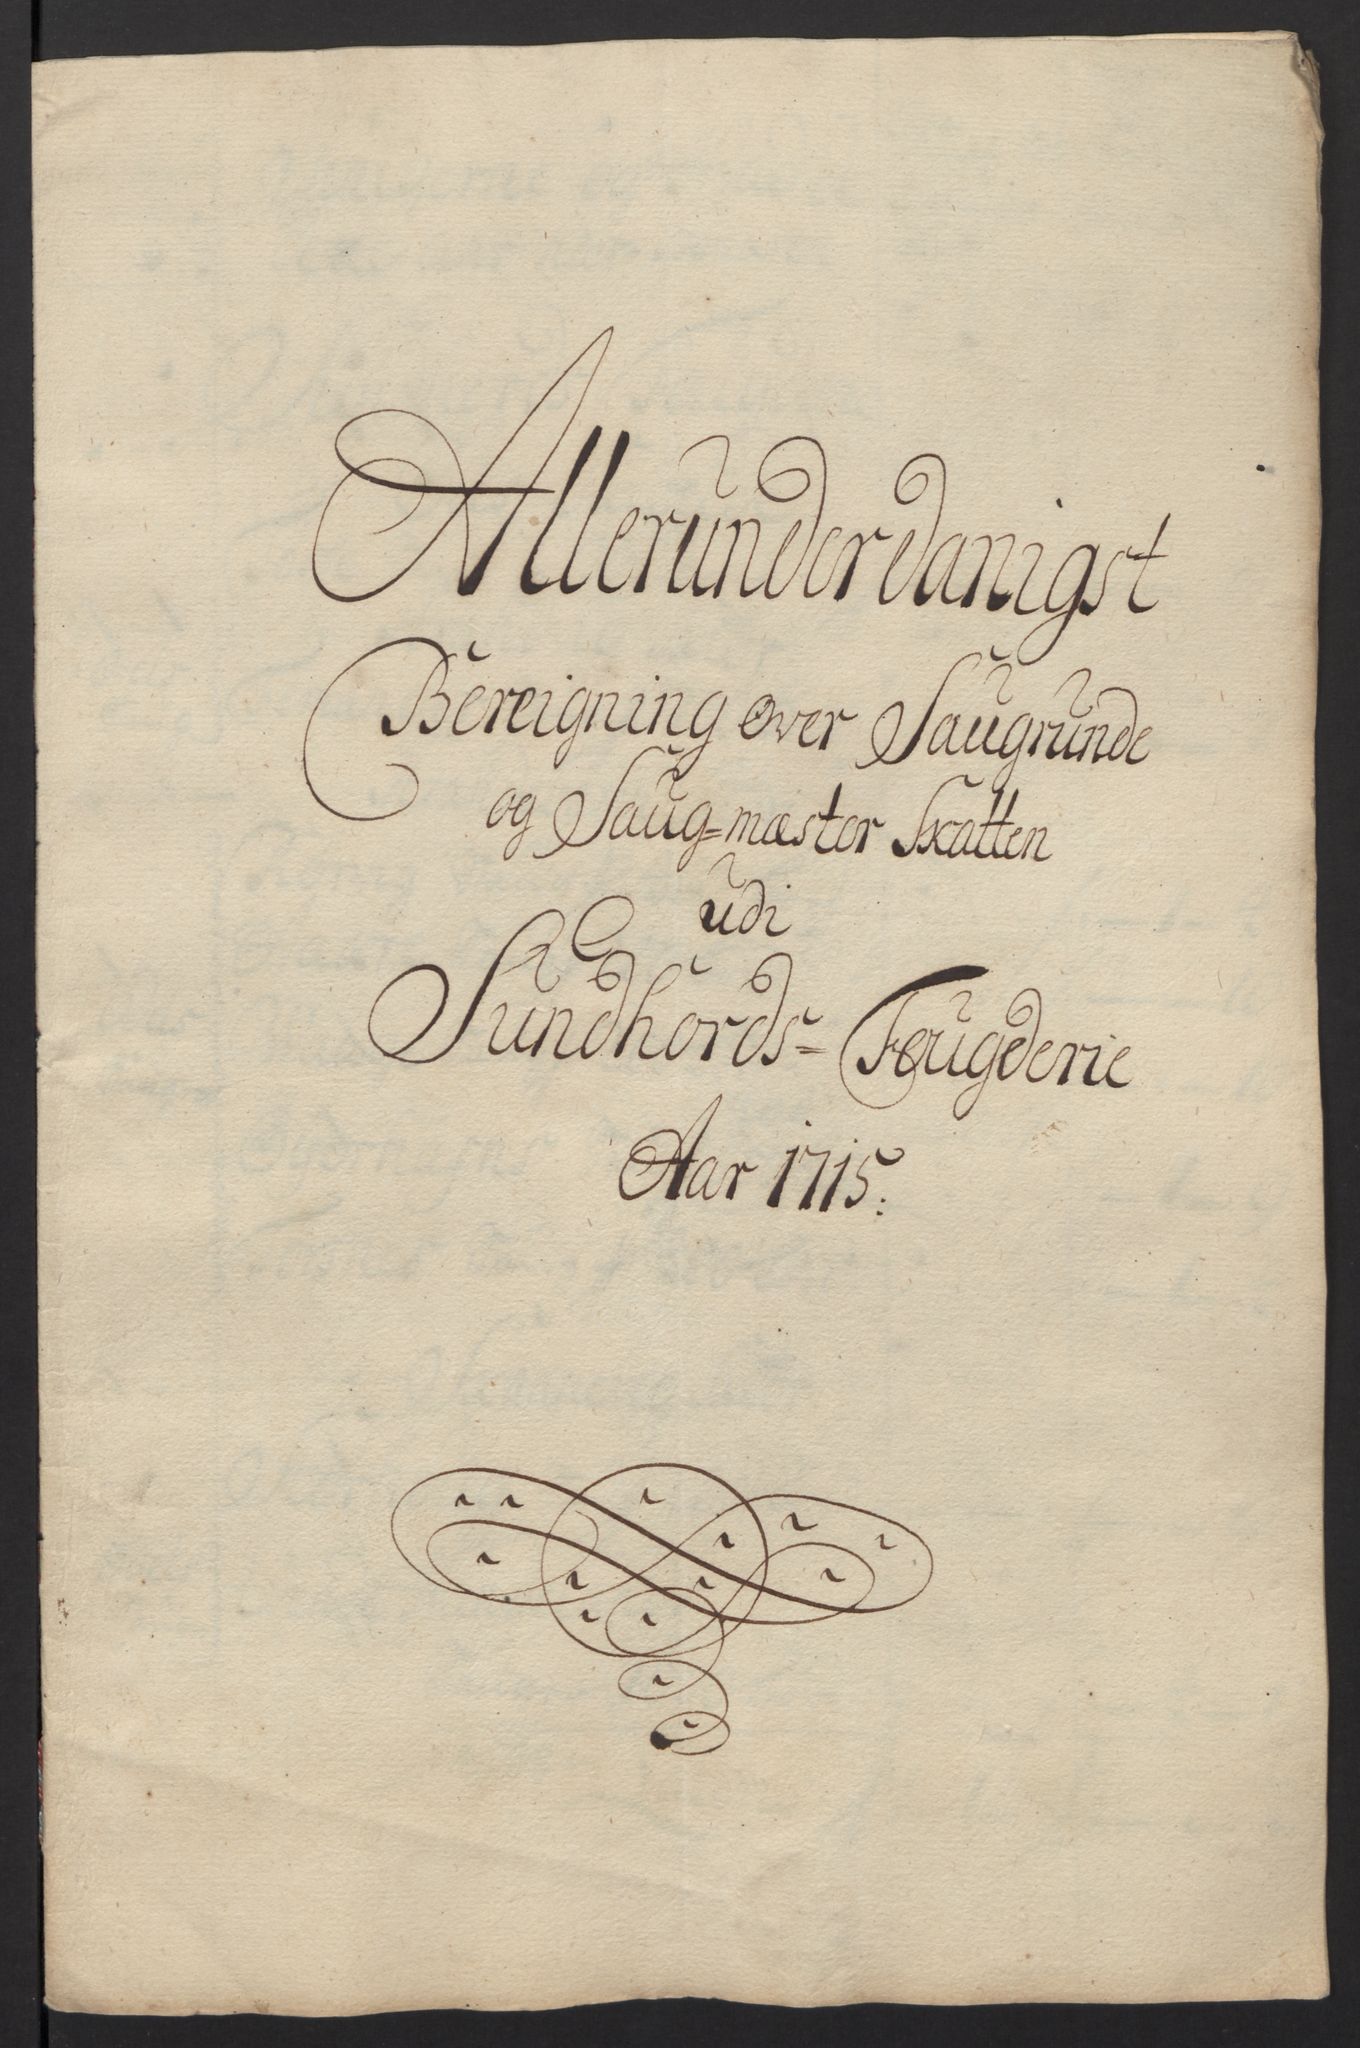 Allerunderdanigst
Bereigning over Saugrunde
og Saug=mæster Skatten
udi
Sundhords= Fougderie
Aar 1715.